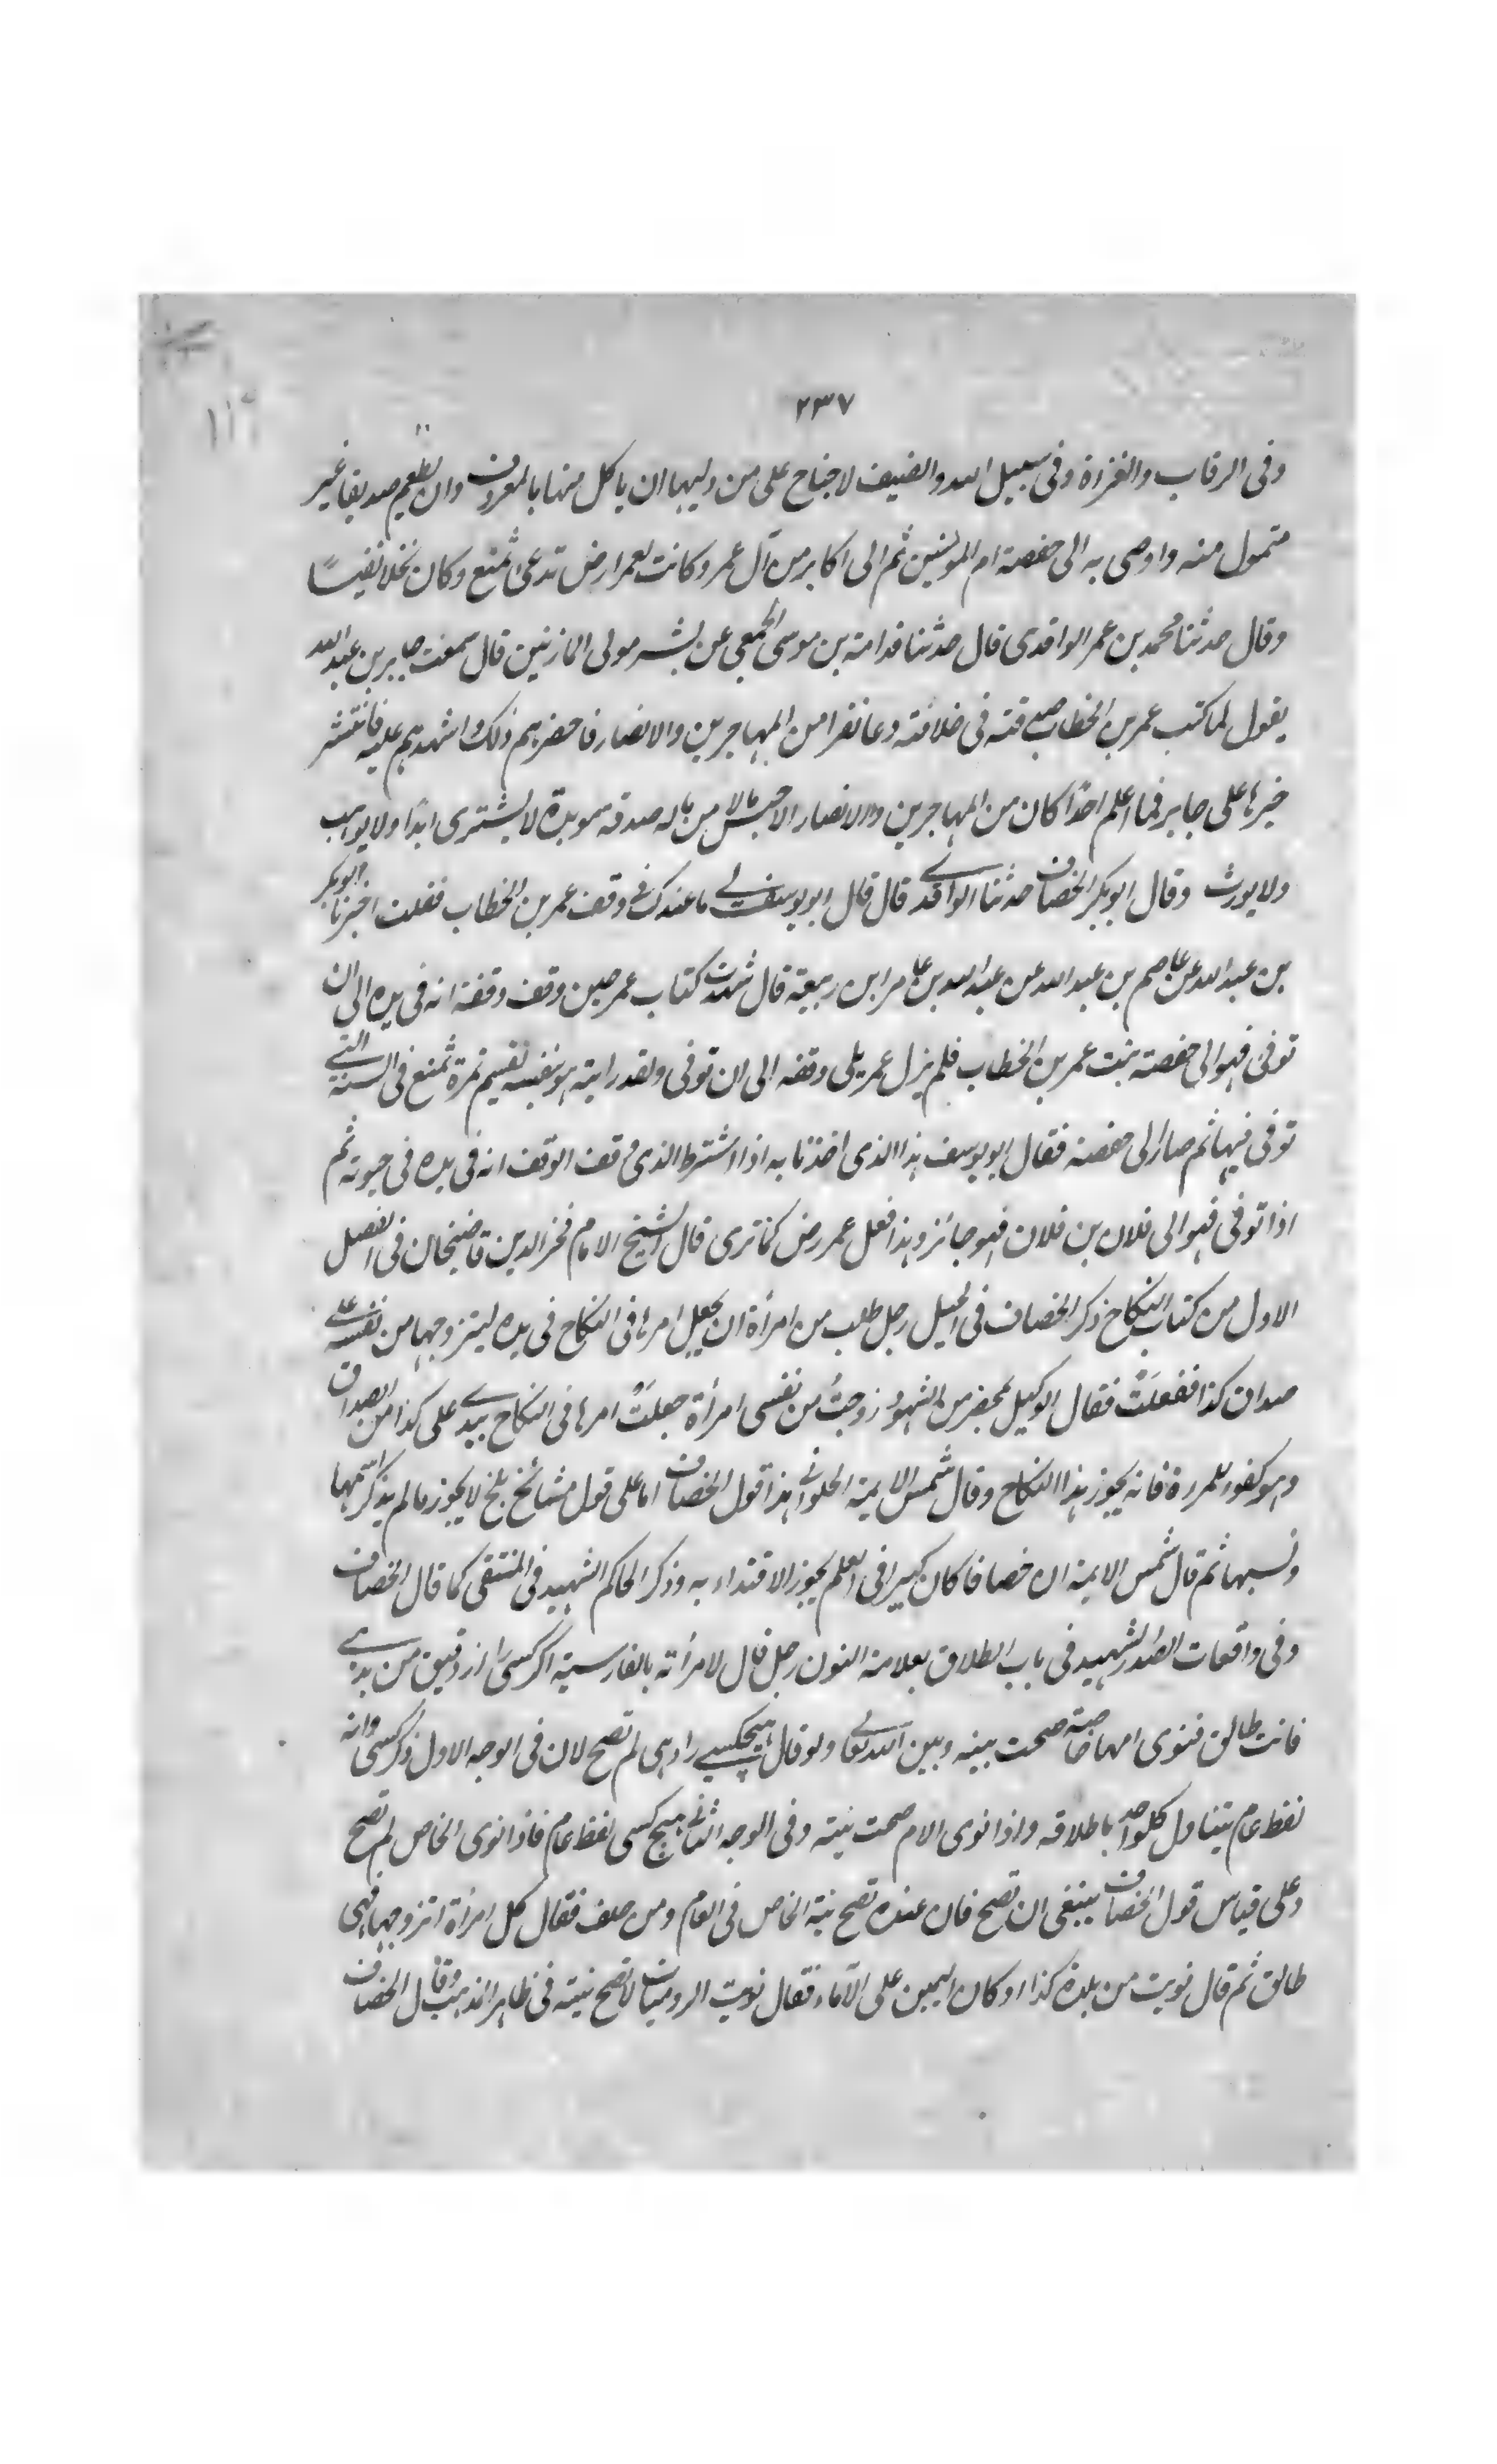 ٢٣٧
وفى الرقاب والغزاة وفى سبيل الله والضيف لاجناح على من وليها ان ياكل منها بالمعروف وان يطعم صديقا غير
متمول منه واوصى به الى حفصة ام المومنين ثم الى اكابر من آل عمر وكانت لعمر ارض تدعى ثمغ وكان نخلا نفيسًا
وقال حدثنا محمد بن عمر الواقدى قال حدثنا قدامة بن موسى الجمعى عن بشر مولى المازنيين قال سمعت جابر بن عبد الله
يقول لما كتب عمر بن الخطاب صدقته فى خلافته دعا نفرا من المهاجرين والانصار فاحضرهم ذلك واشهدهم عليه فانتشر
خبرها على جابر فما اعلم احدًا كان من المهاجرين والانصار الا حبس مالا من ماله صدقة موبدة لا يشترى ابدًا ولا يواهب
ولا يورث وقال ابوبكر الخصاف حدثنا الواقدى قال قال ابويوسف لى ما عندك فى وقف عمر بن الخطاب فقلت اخبرنا ابوبكر
بن عبد الله عن عاصم بن عبد الله عن عبد الله بن عامر ابن ربيعة قال شهدت كتاب عمر حين وقف وقفه انه فى يده الى ان
توفى فهو الى حفصة بنت عمر بن الخطاب فلم يزل عمر يلى وقفه الى ان توفى ولقد رايته هو بنفسه يقسم ثمرة ثمغ فى السنة التى
توفى فيها ثم صار الى حفصة فقال ابويوسف هذا الذى اخذنا به اذا اشترط الذى وقف الوقف انه فى يده فى حيوته ثم
اذا توفى فهو الى فلان بن فلان فهو جائز وهذا فعل عمر رض كما ترى قال الشيخ الامام فخر الدين قاضيخان فى الفصل
الاول من كتاب النكاح ذكر الخصاف فى الحيل رجل طلب من امرأة ان يجعل امرها فى النكاح فى يده ليتزوجها من نفسه على
صداق كذا ففعلت فقال الوكيل بمحضر من الشهود زوجت من نفسى امرأة جعلت امرها فى النكاح بيدى على كذا من الصداق
وهو كفو للمراة فانه يجوز هذا النكاح وقال شمس الايمة الحلوانى هذا قول الخصاف اما على قول مشائخ بلخ لا يجوز ما لم يذكر اسمها
ونسبها ثم قال شمس الايمة ان خصافا كان كبيرا فى العلم يجوز الاقتداء به وذكر الحاكم الشهيد فى المنتقى كما قال الخصاف
وفى واقعات الصدر الشهيد فى باب الطلاق بعلامة النون رجل قال لامرأته بالفارسية اگر كسى را از دقيق من بدهى
فانت طالق فنوى امها خاصة صحت بينه وبين الله تعالى ولو قال هيچكسى را دهى لم تصح لان فى الوجه الاول ذكر كسى وانه
لفظ عام يتناول كلواحد باطلاقه واذا نوى الام صحت نيته وفى الوجه الثانى هيچ كسى لفظ عام فاذا نوى الخاص لم تصح
وعلى قياس قول الخصاف ينبغى ان تصح فان عنده تصح نية الخاص فى العام ومن حلف فقال كل امرأة اتزوجها فهى
طالق ثم قال نويت من بلدة كذا او كان اليمين على الآماء فقال نويت الروميات لا تصح نيته فى ظاهر المذهب وقال الخصاف